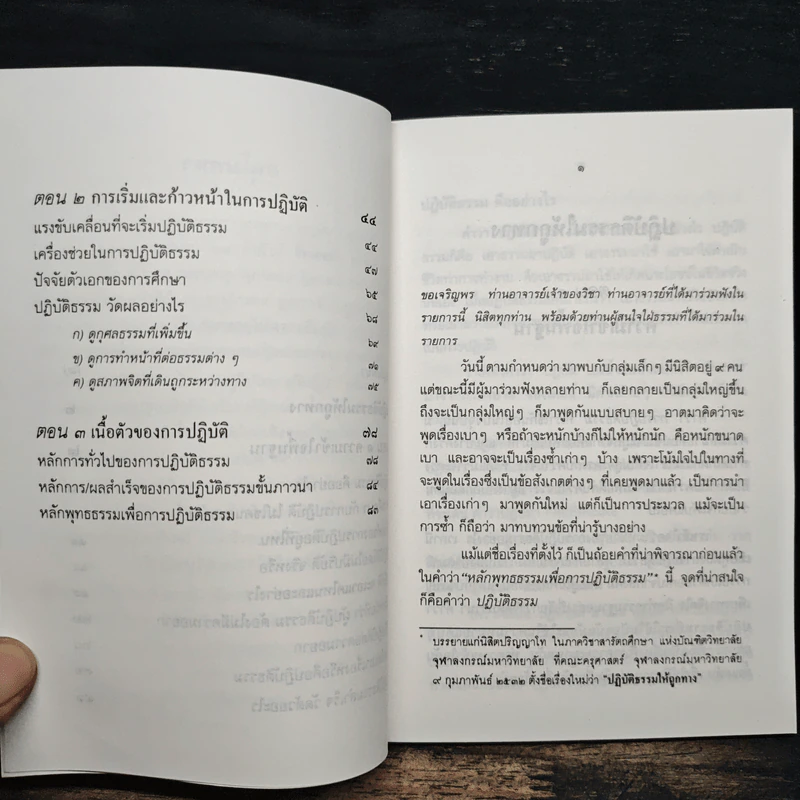 ตอน ๒ การเริ่มและก้าวหน้าในการปฏิบัติ ๔๔
แรงขับเคลื่อนที่จะเริ่มปฏิบัติธรรม ๔๔
เครื่องช่วยในการปฏิบัติธรรม ๔๙
ปัจจัยตัวเอกของการศึกษา ๔๗
ปฏิบัติธรรม วัดผลอย่างไร ๖๕
ก) ดูกุศลธรรมที่เพิ่มขึ้น ๖๘
ข) ดูการทำหน้าที่ต่อธรรมต่าง ๆ ๖๙
ค) ดูสภาพจิตที่เดินถูกระหว่างทาง ๗๑
๗๕
ตอน ๓ เนื้อตัวของการปฏิบัติ ๗๘
หลักการทั่วไปของการปฏิบัติธรรม ๗๘
หลักการ/ผลสำเร็จของการปฏิบัติธรรมขั้นภาวนา ๘๔
หลักพุทธธรรมเพื่อการปฏิบัติธรรม ๘๓
๑
ปฏิบัติธรรมให้ถูกทาง
ขอเจริญพร ท่านอาจารย์เจ้าของวิชา ท่านอาจารย์ที่ได้มาร่วมฟังใน
รายการนี้ นิสิตทุกท่าน พร้อมด้วยท่านผู้สนใจใฝ่ธรรมที่ได้มาร่วมใน
รายการ
วันนี้ ตามกำหนดว่า มาพบกับกลุ่มเล็กๆ มีนิสิตอยู่ ๙ คน
แต่ขณะนี้มีผู้มาร่วมฟังหลายท่าน ก็เลยกลายเป็นกลุ่มใหญ่ขึ้น
ถึงจะเป็นกลุ่มใหญ่ๆ ก็มาพูดกันแบบสบายๆ อาตมาคิดว่าจะ
พูดเรื่องเบาๆ หรือถ้าจะหนักบ้างก็ไม่ให้หนักนัก คือหนักขนาด
เบา และอาจจะเป็นเรื่องซ้ำเก่าๆ บ้าง เพราะโน้มใจไปในทางที่
จะพูดในเรื่องซึ่งเป็นข้อสังเกตต่างๆ ที่เคยพูดมาแล้ว เป็นการนำ
เอาเรื่องเก่าๆ มาพูดกันใหม่ แต่ก็เป็นการประมวล แม้จะเป็น
การซ้ำ ก็ถือว่า มาทบทวนข้อที่น่ารู้บางอย่าง
แม้แต่ชื่อเรื่องที่ตั้งไว้ ก็เป็นถ้อยคำที่น่าพิจารณาก่อนแล้ว
ในคำว่า "หลักพุทธธรรมเพื่อการปฏิบัติธรรม"* นี้ จุดที่น่าสนใจ
ก็คือคำว่า ปฏิบัติธรรม
* บรรยายแก่นิสิตปริญญาโท ในภาควิชาสารัตถศึกษา แห่งบัณฑิตวิทยาลัย
จุฬาลงกรณ์มหาวิทยาลัย ที่คณะครุศาสตร์ จุฬาลงกรณ์มหาวิทยาลัย
๙ กุมภาพันธ์ ๒๕๓๒ ตั้งชื่อเรื่องใหม่ว่า "ปฏิบัติธรรมให้ถูกทาง"